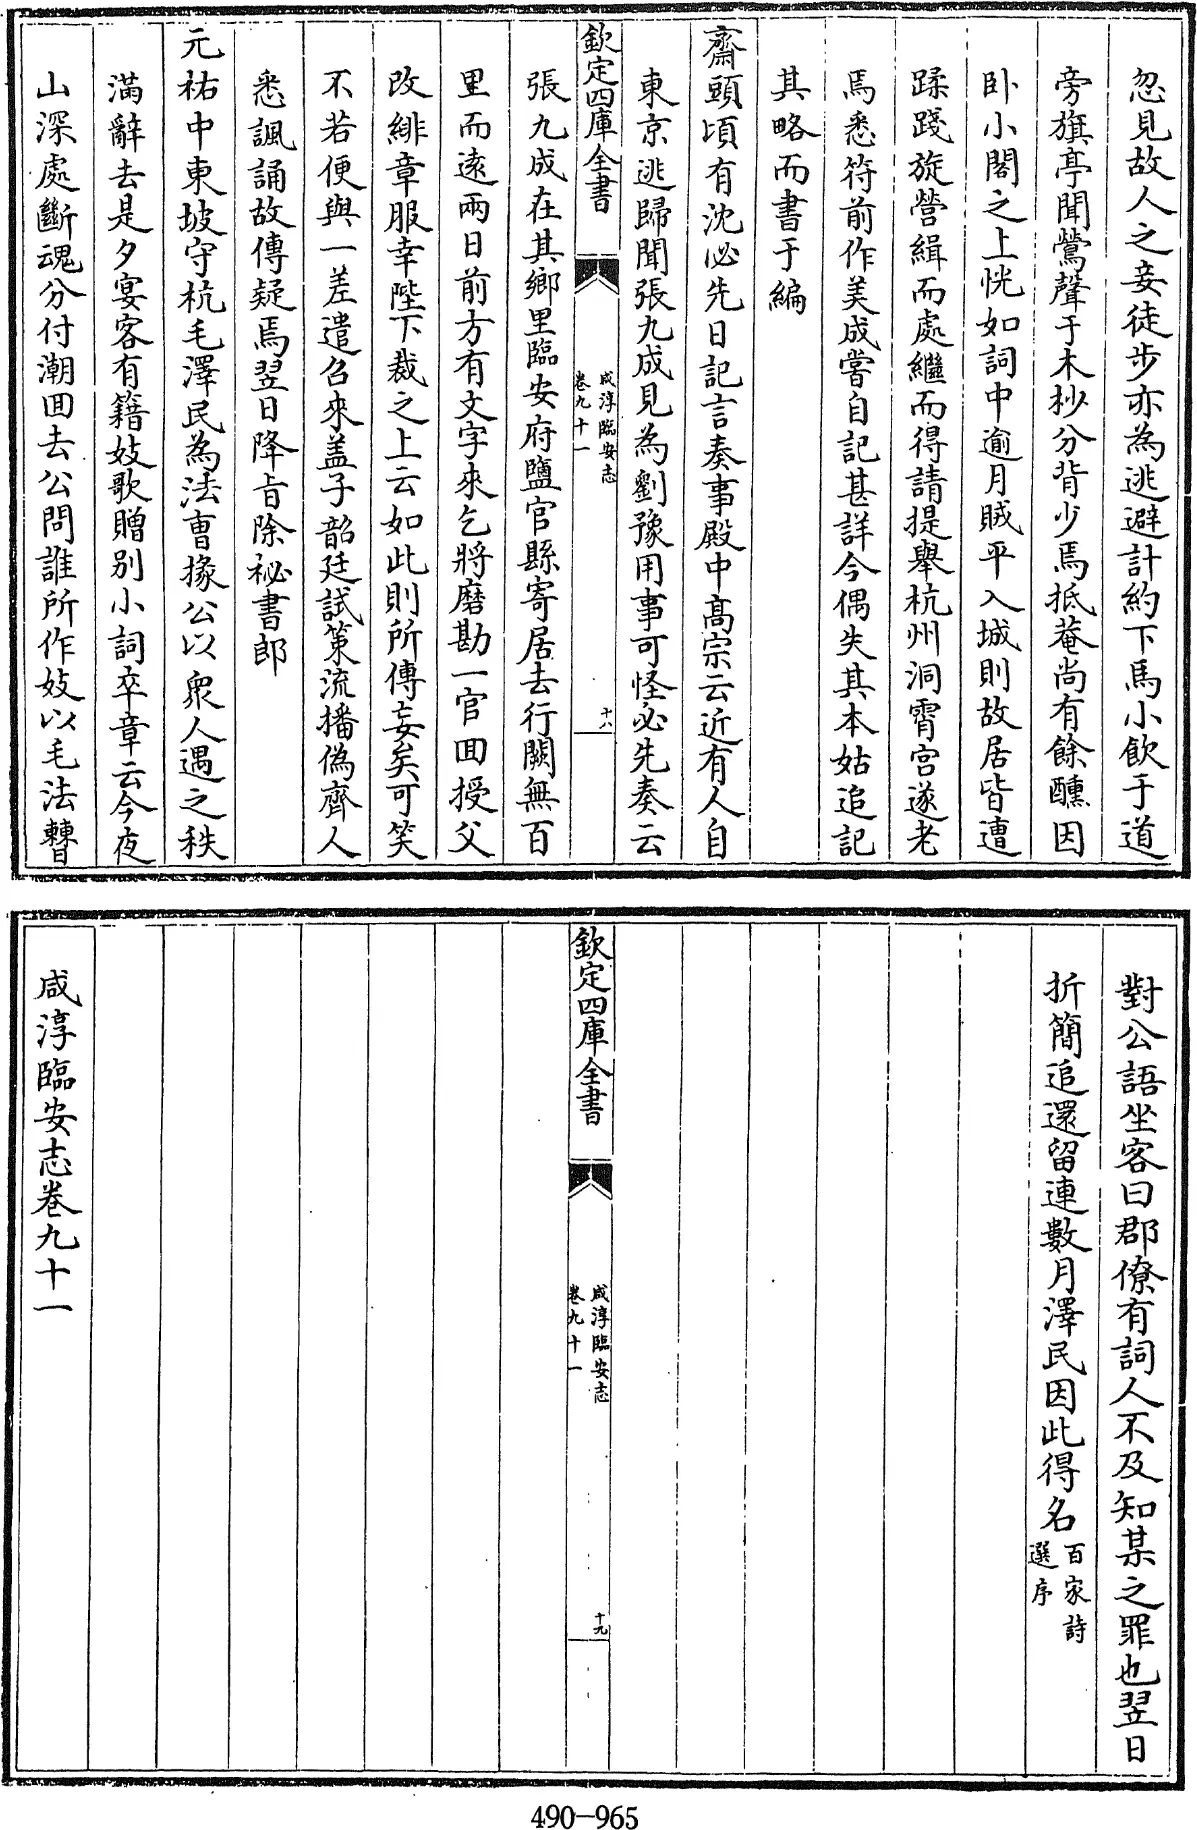 忽見故人之妾徒步亦為逃避計約下馬小飲于道
旁旗亭聞鶯聲于木杪分背少焉抵菴尚有餘醺因
卧小閣之上恍如詞中逾月賊平入城則故居皆遭
蹂踐旋營緝而處繼而得請提舉杭州洞霄宮遂老
焉悉符前作美成嘗自記甚詳今偶失其本姑追記
其略而書于編
齋頭頃有沈必先日記言奏事殿中高宗云近有人自
東京逃歸聞張九成見為劉豫用事可怪必先奏云
欽定四庫全書
咸淳臨安志
卷九十一
十八
張九成在其鄉里臨安府鹽官縣寄居去行闕無百
里而遠兩日前方有文字來乞將磨勘一官囬授父
改緋章服幸陛下裁之上云如此則所傳妄矣可笑
不若便與一差遣召來盖子韶廷試策流播偽齊人
悉諷誦故傳疑焉翌日降旨除祕書郎
元祐中東坡守杭毛澤民為法曹掾公以衆人遇之秩
滿辭去是夕宴客有籍妓歌贈別小詞卒章云今夜
山深處斷魂分付潮囬去公問誰所作妓以毛法曹
對公語坐客曰郡僚有詞人不及知某之罪也翌日
折簡追還留連數月澤民因此得名
百家詩
選序
欽定四庫全書
咸淳臨安志
卷九十一
十九
咸淳臨安志卷九十一
490-965